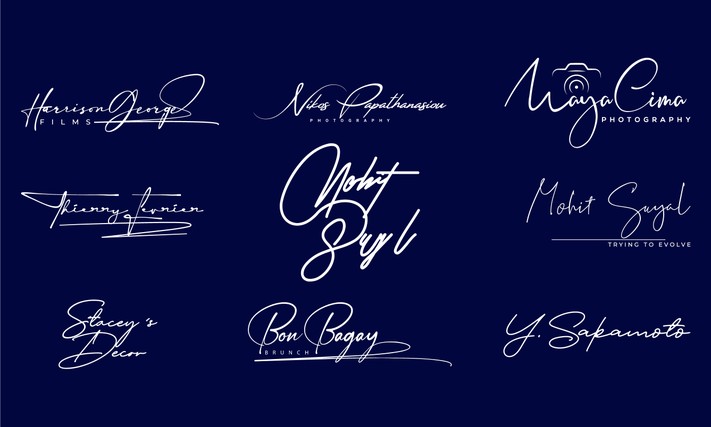 Harrison George
FILMS
Nikos Papathanasiou
PHOTOGRAPHY
Maya Cima
PHOTOGRAPHY
Thienny Fevrier
Mohit
Suyl
Mohit Suyal
TRYING TO EVOLVE
Stacey's
Decor
Bon Bagay
BRUNCH
Y. Sakamoto